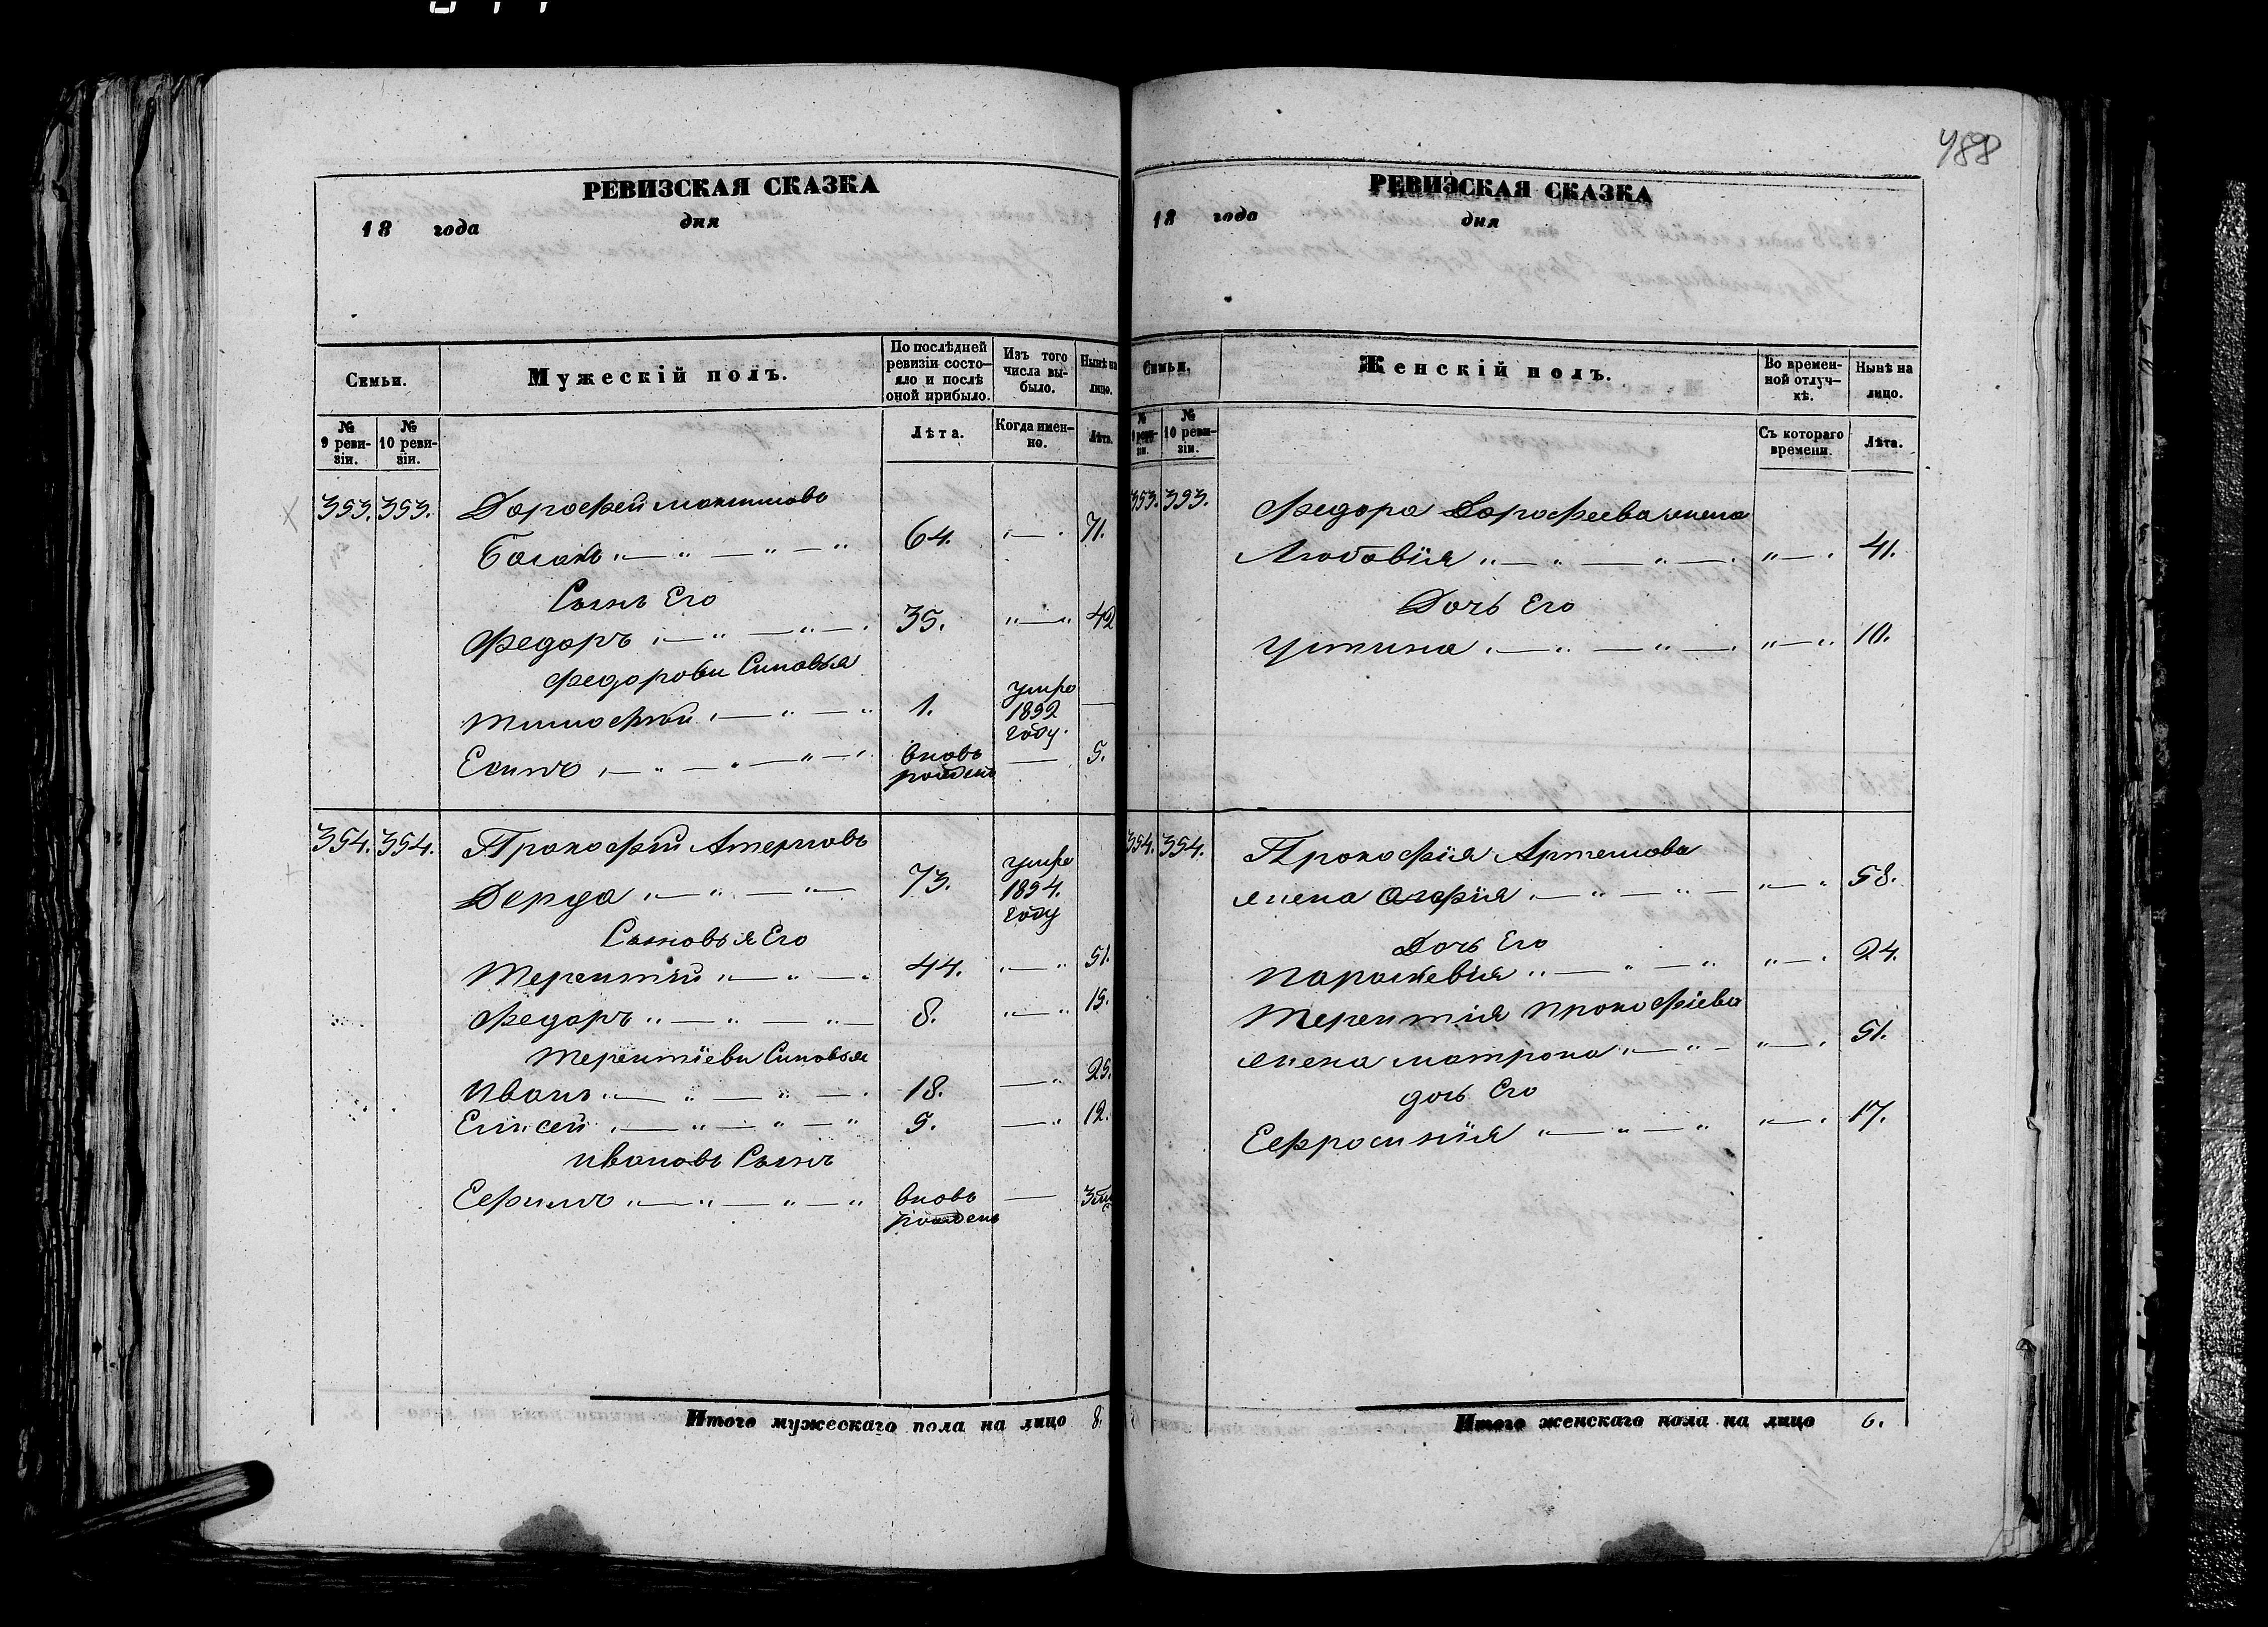 488
РЕВИЗСКАЯ СКАЗКА
18 года дня
Семьи.
Мужескій полъ.
По послѣдней ревизіи состояло и послѣ оной прибыло.
Изъ того числа выбыло.
Нынѣ на лицо.
№ 9 ревизіи.
№ 10 ревизіи.
Лѣта.
Когда именно.
Лѣта.
353. 353. Дорофей Макимовъ
64. 71.
Сынъ Его
Федоръ 35. 42
Федорови Синовья
Тимофей 1. умре 1852 году.
Есипъ вновь рожденъ 5.
354. 354. Прокофій Атермовъ
Дерда 73. умре 1854. году
Сыновья Его
Терентій 44. 51.
Федоръ 8. 15.
Терентіеви Синовья
Иванъ 18. 25.
Елисей 5. 12.
Ивановъ Сынъ
Ефимъ вновь рожденъ
Итого мужескаго пола на лицо 8.
РЕВИЗСКАЯ СКАЗКА
18 года дня
Семьи.
Женскій полъ.
Во временной отлучкѣ.
Нынѣ на лицо.
№ 9 ревизіи.
№ 10 ревизіи.
Съ котораго времени.
Лѣта.
353. 353. Федора Дорофеева жена
Любовія 41.
Дочь Его
Устина 10.
354. 354. Прокофія Артемова
жена Агафія 58.
Дочь Его
Параскевія 24.
Терентія Прокофіева
жена Матрона 51.
дочь Его
Ефросинія 17.
Итого женскаго пола на лицо 6.